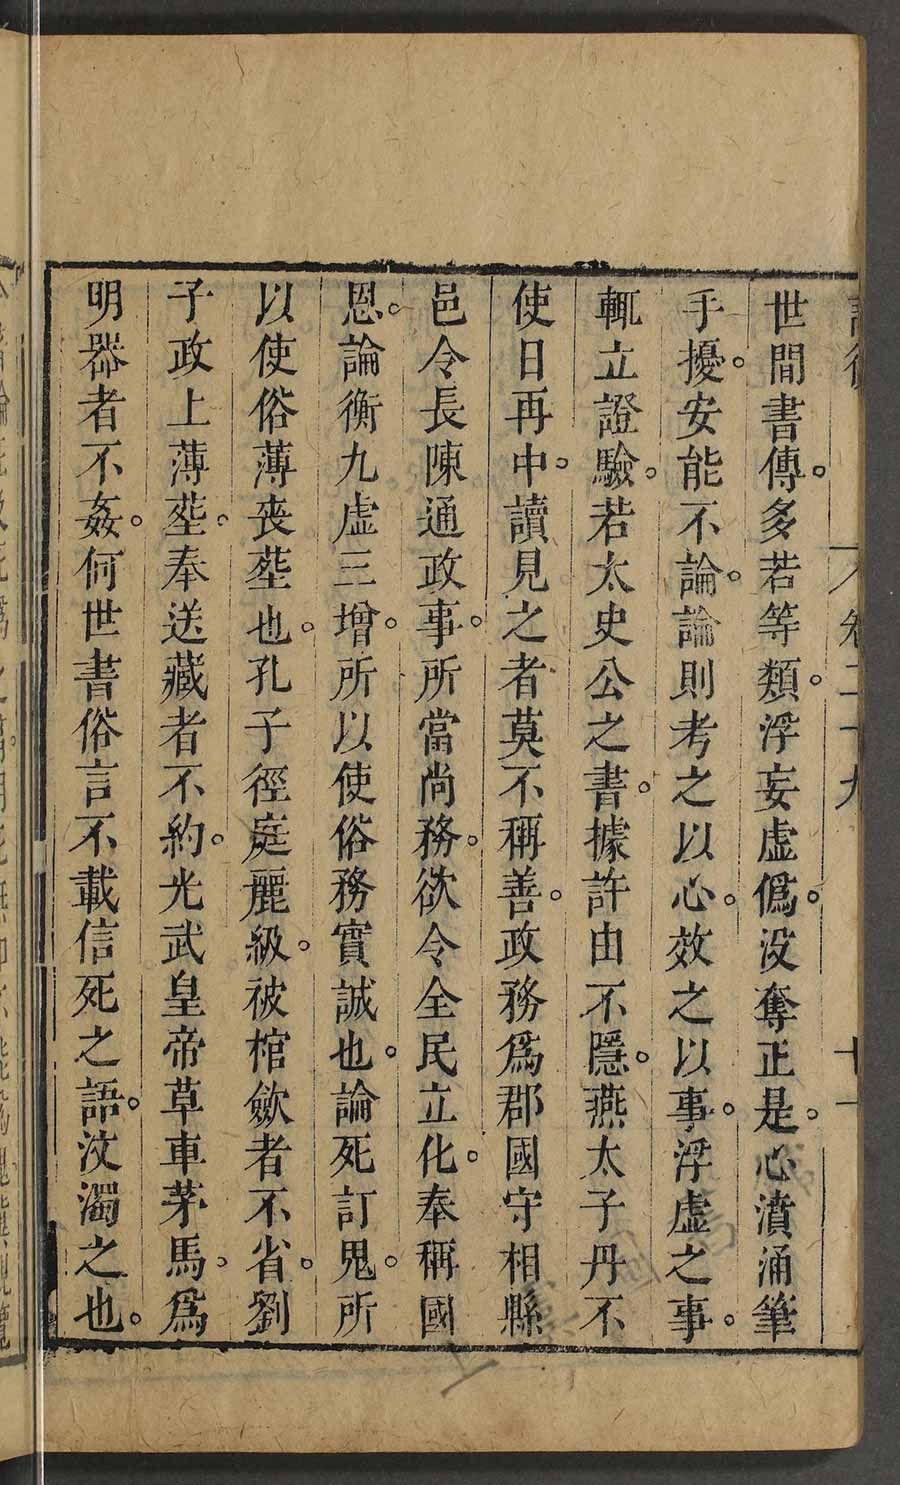 論衡 卷二十九 十一
世間書傳。多若等類。浮妄虛僞。没奪正是。心濆涌筆
手擾。安能不論。論則考之以心。效之以事。浮虛之事。
輒立證驗。若太史公之書。據許由不隱。燕太子丹不
使日再中。讀見之者莫不稱善。政務爲郡國守相縣
邑令長陳通政事。所當尚務。欲令全民立化。奉稱國
恩。論衡九虛三增。所以使俗務實誠也。論死訂鬼。所
以使俗薄喪塟也。孔子徑庭麗級。被棺歛者不省。劉
子政上薄塟。奉送藏者不約。光武皇帝草車茅馬。爲
明器者不姦。何世書俗言不載信死之語。汶濁之也。